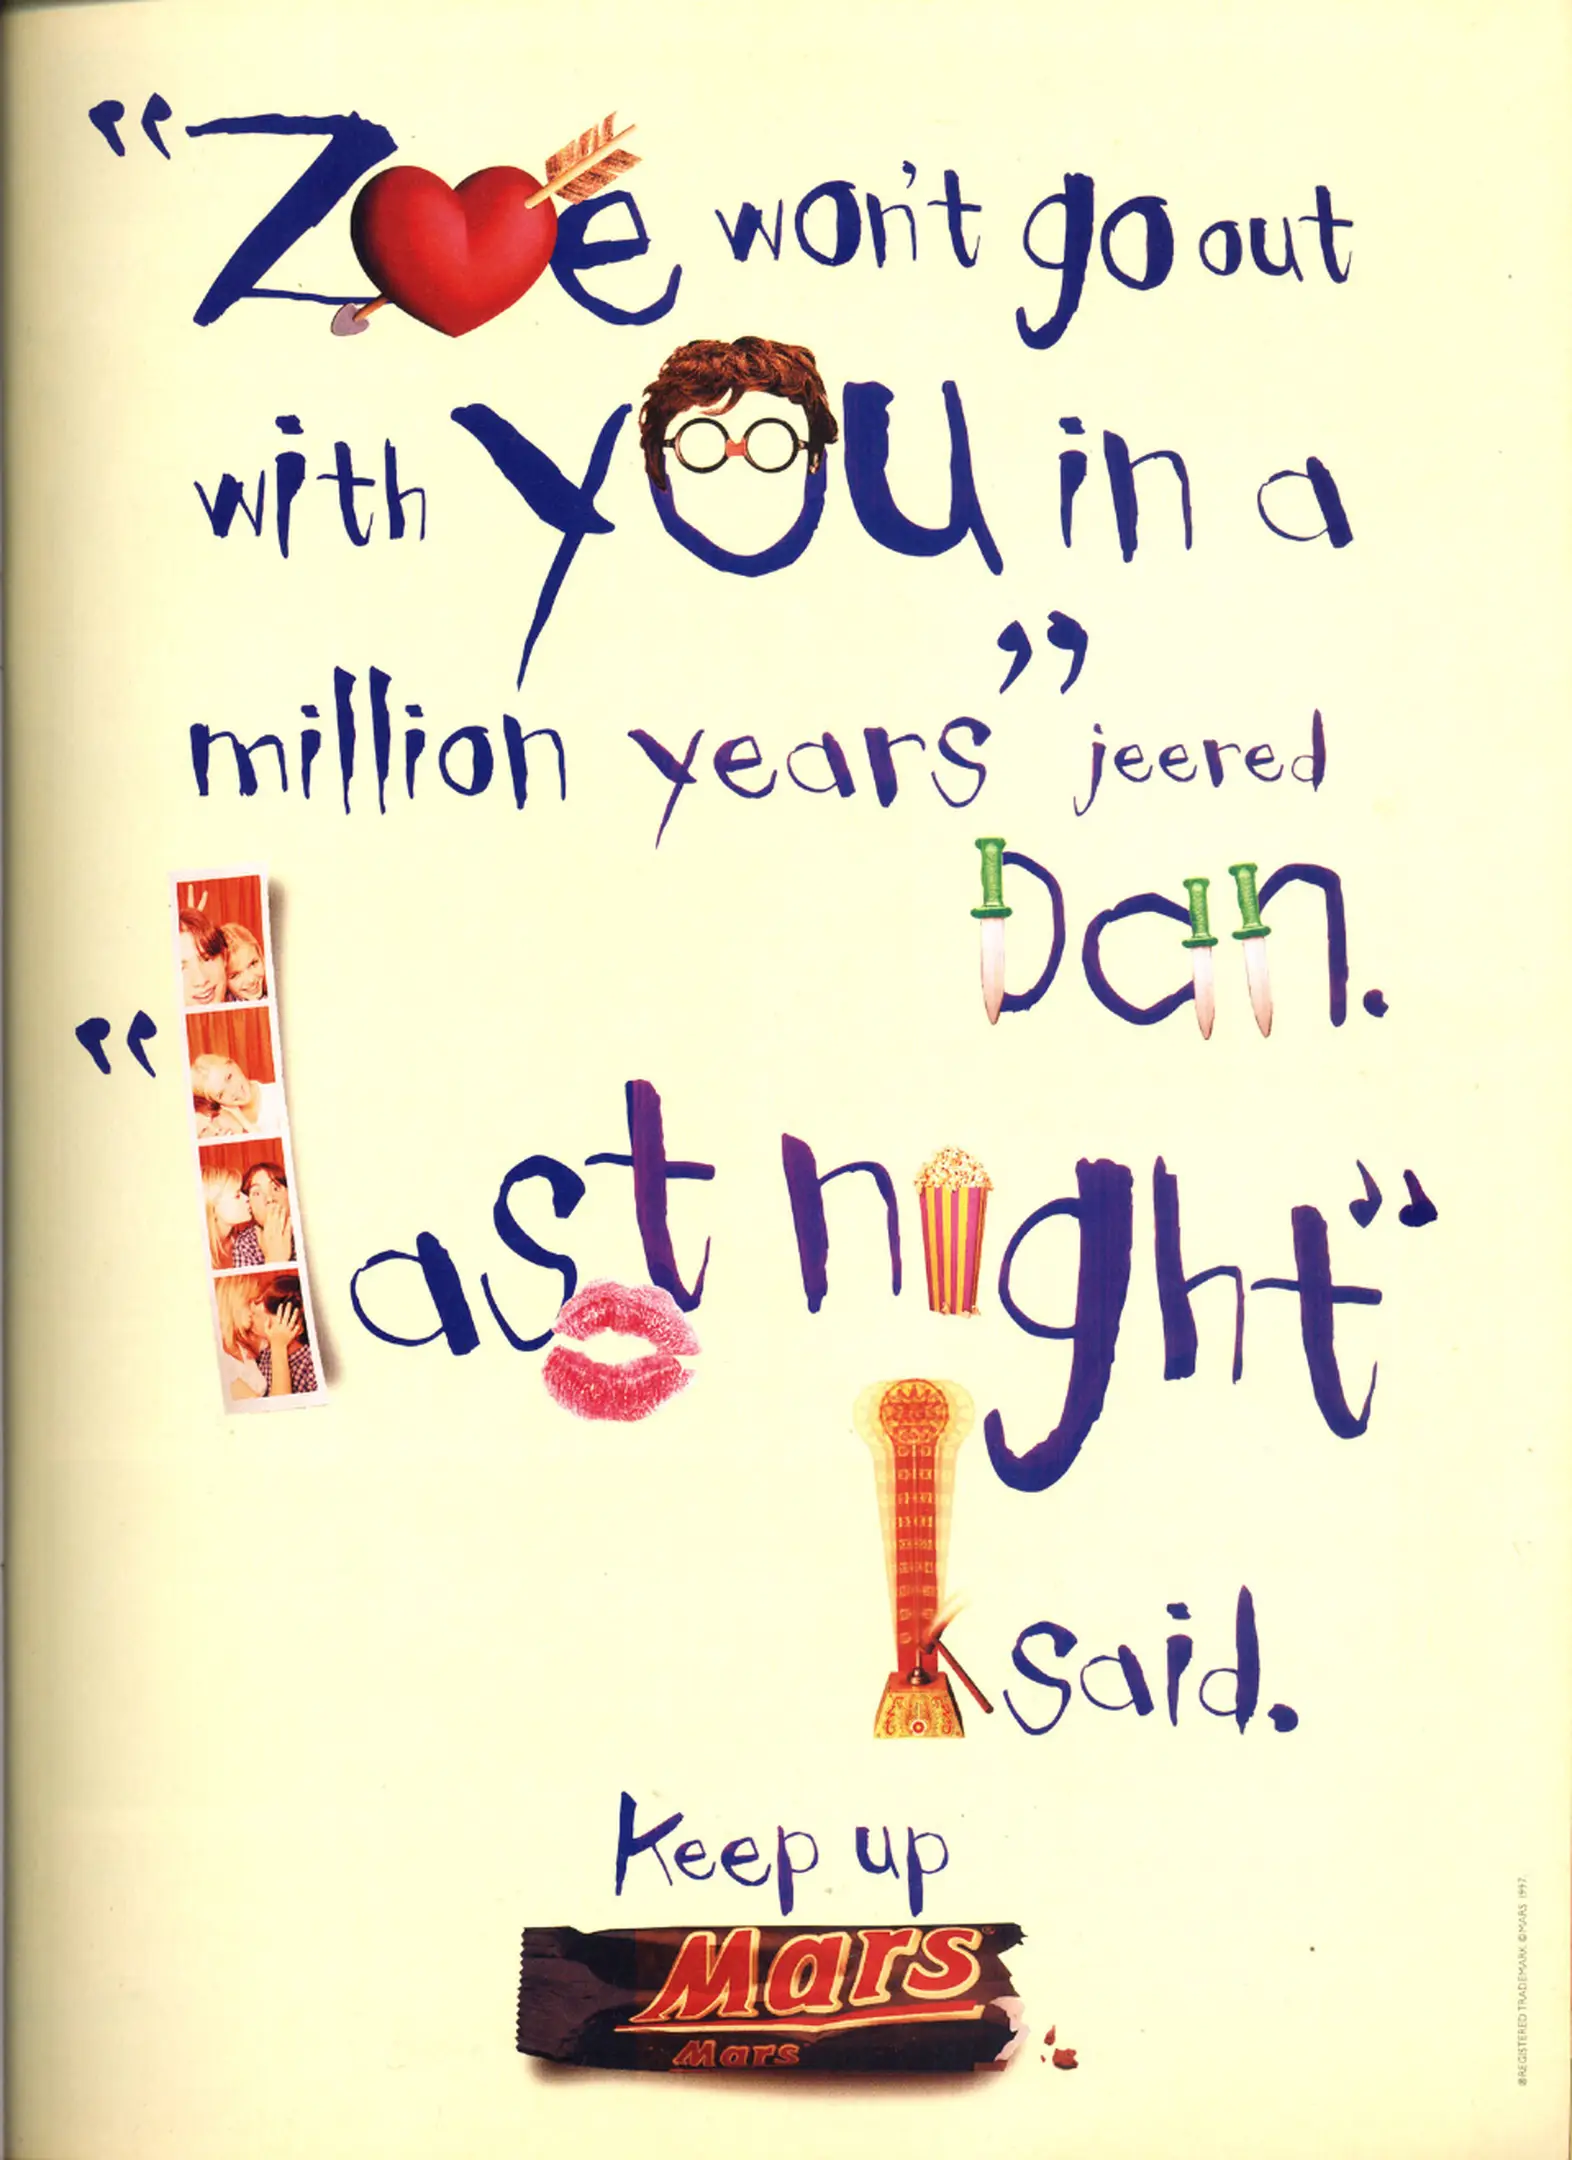 “Zoe won't go out
with you in a
million years” jeered
Dan.
“last night”
I said.
Keep up
Mars
Mars
®REGISTERED TRADEMARK ©MARS 1997